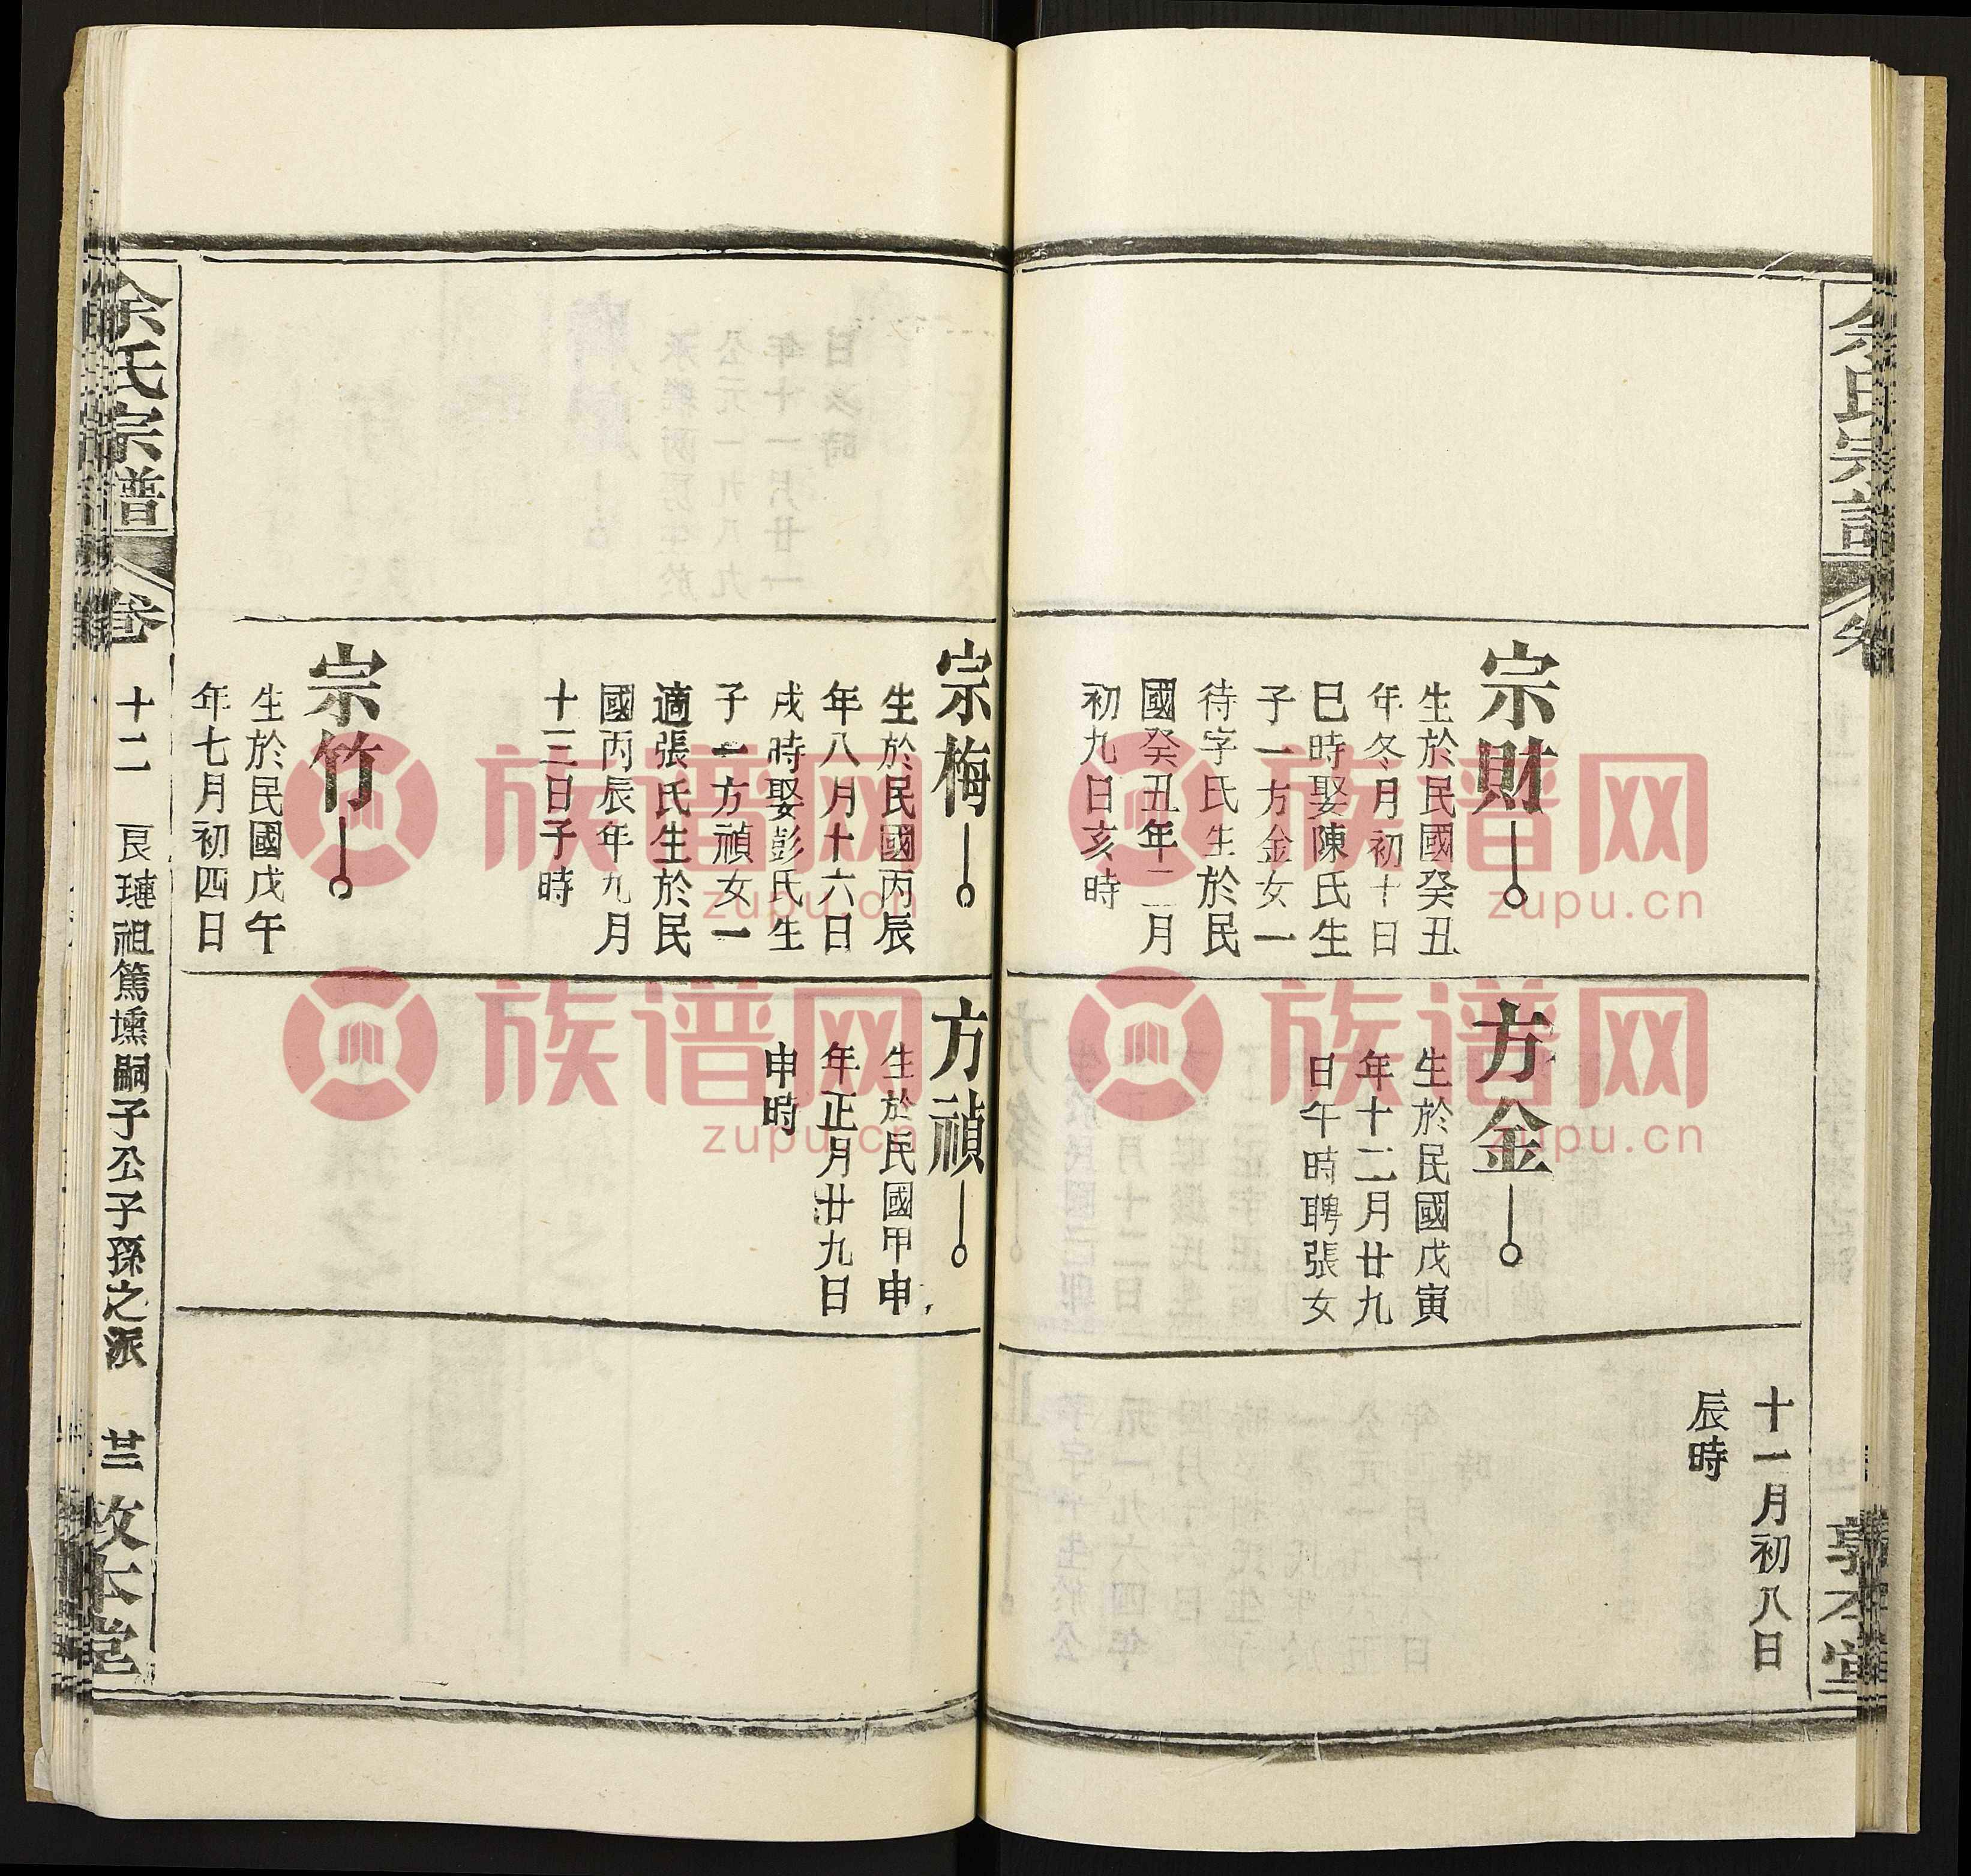 十一月初八日
辰時
宗財
生於民國癸丑
年冬月初十日
巳時娶陳氏生
子一方金女一
待字氏生於民
國癸丑年二月
初九日亥時
方金
生於民國戊寅
年十二月廿九
日午時聘張女
宗梅
生於民國丙辰
年八月十六日
戌時娶彭氏生
子一方禎女一
適張氏生於民
國丙辰年九月
十三日子時
方禎
生於民國甲申
年正月廿九日
申時
宗竹
生於民國戊午
年七月初四日
余氏宗譜
卷
十二
良璉祖篤壎嗣子公子孫之派
族谱网
zupu.cn
族谱网
zupu.cn
族谱网
zupu.cn
族谱网
zupu.cn